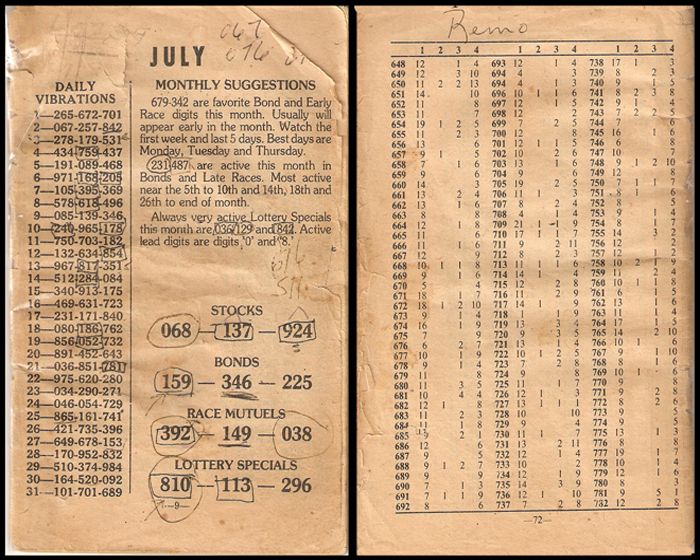 JULY
067
076
DAILY
VIBRATIONS
1—265-672-701
2—067-257-842
3—278-179-531
4—434-759-437
5—191-089-468
6—971-168-205
7—105-395-369
8—578-618-496
9—085-139-346
10—240-965-178
11—750-703-182
12—132-634-854
13—967-817-351
14—512-284-084
15—340-913-175
16—469-631-723
17—231-171-840
18—080-186-762
19—856-052-732
20—891-452-643
21—036-851-781
22—975-620-280
23—034-290-271
24—046-054-729
25—865-161-741
26—421-735-396
27—649-678-153
28—170-952-832
29—510-374-984
30—164-520-092
31—101-701-689
MONTHLY SUGGESTIONS
679-342 are favorite Bond and Early
Race digits this month. Usually will
appear early in the month. Watch the
first week and last 5 days. Best days are
Monday, Tuesday and Thursday.
231/487 are active this month in
Bonds and Late Races. Most active
near the 5th to 10th and 14th, 18th and
26th to end of month.
Always very active Lottery Specials
this month are 036/129 and 842. Active
lead digits are digits '0' and '8.'
STOCKS
068 — 137 — 924
BONDS
159 — 346 — 225
RACE MUTUELS
392 — 149 — 038
LOTTERY SPECIALS
810 — 113 — 296
—9—
Remo
1 2 3 4 1 2 3 4 1 2 3 4
648 12 1 4 693 12 1 4 738 17 1 3
649 12 3 10 694 4 3 739 8 2 3
650 11 2 2 13 694 4 1 740 9 1 5
651 14 10 696 10 1 1 741 8 2 3 8
652 11 8 697 12 1 5 742 9 1 4
653 11 7 698 12 2 743 7 2 2 5
654 19 1 2 5 699 2 5 744 7 6
655 11 2 3 700 12 8 745 16 1 6
656 13 6 701 12 1 1 5 746 6 8
657 9 1 5 702 10 2 6 747 10 7
658 7 1 6 703 13 1 6 748 9 1 2 10
659 6 9 704 9 6 749 12
660 14 3 705 19 2 5 750 7 1 1 7
661 13 2 4 706 11 1 3 751 8 1 6
662 13 1 6 707 8 2 4 752 8 5
663 8 8 708 4 1 4 753 9 1 4
664 12 1 8 709 21 1 9 754 8
665 11 4 710 17 1 1 7 755 14 3 2
666 11 1 6 711 9 2 11 756 12 2
667 9 6 712 8 2 3 757 12 1
668 10 1 1 8 713 11 1 1 6 758 10 2 1 9
669 9 1 6 714 14 1 759 11 2 4
670 5 4 715 12 2 8 760 10 1 8
671 18 1 7 716 11 2 9 761 6 5
672 18 1 2 10 717 14 1 9 762 13 1 6
673 9 1 4 718 1 9 763 11 4
674 16 1 9 719 13 3 4 764 17 1 5
675 7 2 720 9 3 5 765 14 2 10
676 6 2 7 721 13 1 4 766 10 1 6
677 10 1 9 722 10 1 2 5 767 9 1 10
678 9 1 4 723 7 2 8 768 8 1 6
679 11 8 724 9 8 769 10 1 6
680 11 3 5 725 11 1 7 770 9 8
681 10 4 4 726 12 1 3 771 9 2 8
682 12 1 8 727 13 1 1 1 772 8 2 6
683 11 2 3 728 10 10 773 9 5
684 11 1 8 729 9 4 774 9
685 9 2 1 730 11 1 7 775 13 1 3
686 12 6 731 13 2 11 776 8 8
687 9 5 732 12 4 777 19 1 7
688 9 1 2 7 733 10 2 778 10 1 4
689 9 8 734 12 1 9 779 12 1 6
690 7 1 3 735 14 3 9 780 8 3
691 7 1 1 9 736 12 1 10 781 9 5 1
692 8 6 737 7 2 8 782 12 8
—72—